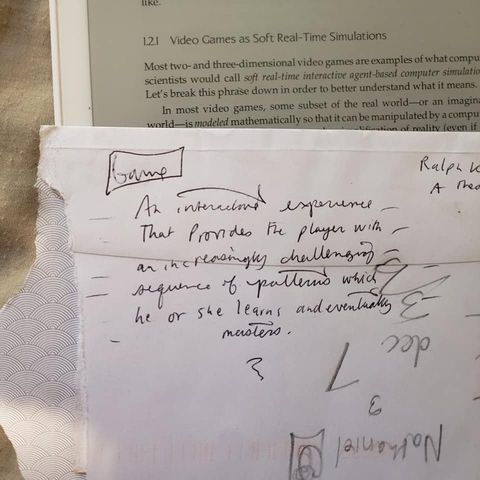 like.
1.2.1 Video Games as Soft Real-Time Simulations
Most two- and three-dimensional video games are examples of what compu
scientists would call soft real-time interactive agent-based computer simulatio
Let's break this phrase down in order to better understand what it means.
In most video games, some subset of the real world—or an imagin
world—is modeled mathematically so that it can be manipulated by a compu
of reality (even if
Game
Ralph
A
An interactive experience
That Provides the player with
an increasingly challenging
sequence of patterns which
he or she learns and eventually
masters.
3
dec
7
3
Nathaniel